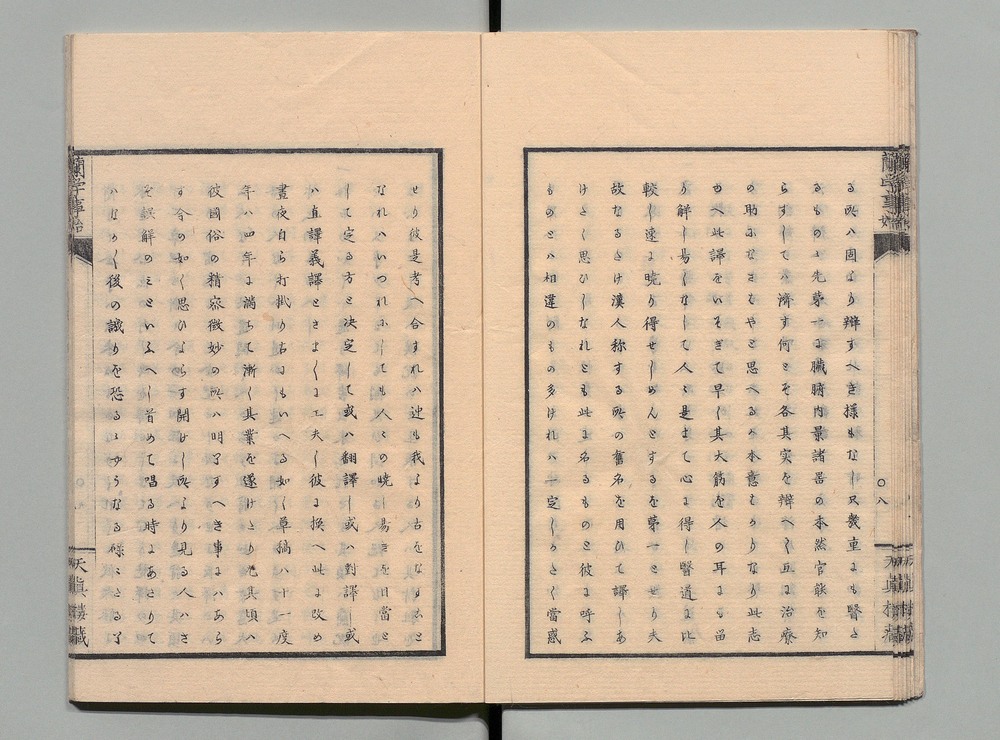 る所ハ固より辯すへき様もなし又幾重にも醫と
るもの上先第一に臓腑内景諸器の本然官能を知
らすしてハ濟す何とそ各其実を辯へ人互に治療
の助になさはやと思へるか本意もかりなり此志
ゆへ此譯をいそきて早く其大筋を人の耳にも留
り解し易くなして人々是まて心に得し醫道に比
較し速に暁り得せしめんとするを第一とせり夫
故なるたけ漢人称する所の舊名を用ひて譯しあ
けたく思ひしなれとも此に名るものと彼に呼ふ
ものとハ相違のもの多けれハ一定しかたく當惑
せり彼是考へ合すれハ迚も我より古をなすこと
なれハいつれにしても人々の暁し易きを目當と
して定る方と决定して或ハ翻譯し或ハ對譯し或
ハ直譯義譯とさまくに工夫し彼に換へ此に改め
晝夜自ら打掛り右にもいへる如く草稿ハ十一度
年ハ四年に満ちて漸く其業を遂けたり尤其頃ハ
彼國俗の精密微妙の所ハ明了すへき事にハあら
す今の如く思ひよらす開けし所より見る人ハさ
そ誤解のミといふへし首めて唱る時にあたりて
ハなかく後の譏りを恐るゝやうなる碌々たる了
蘭学事始
○八
天真樓蔵
蘭学事始
天真樓蔵